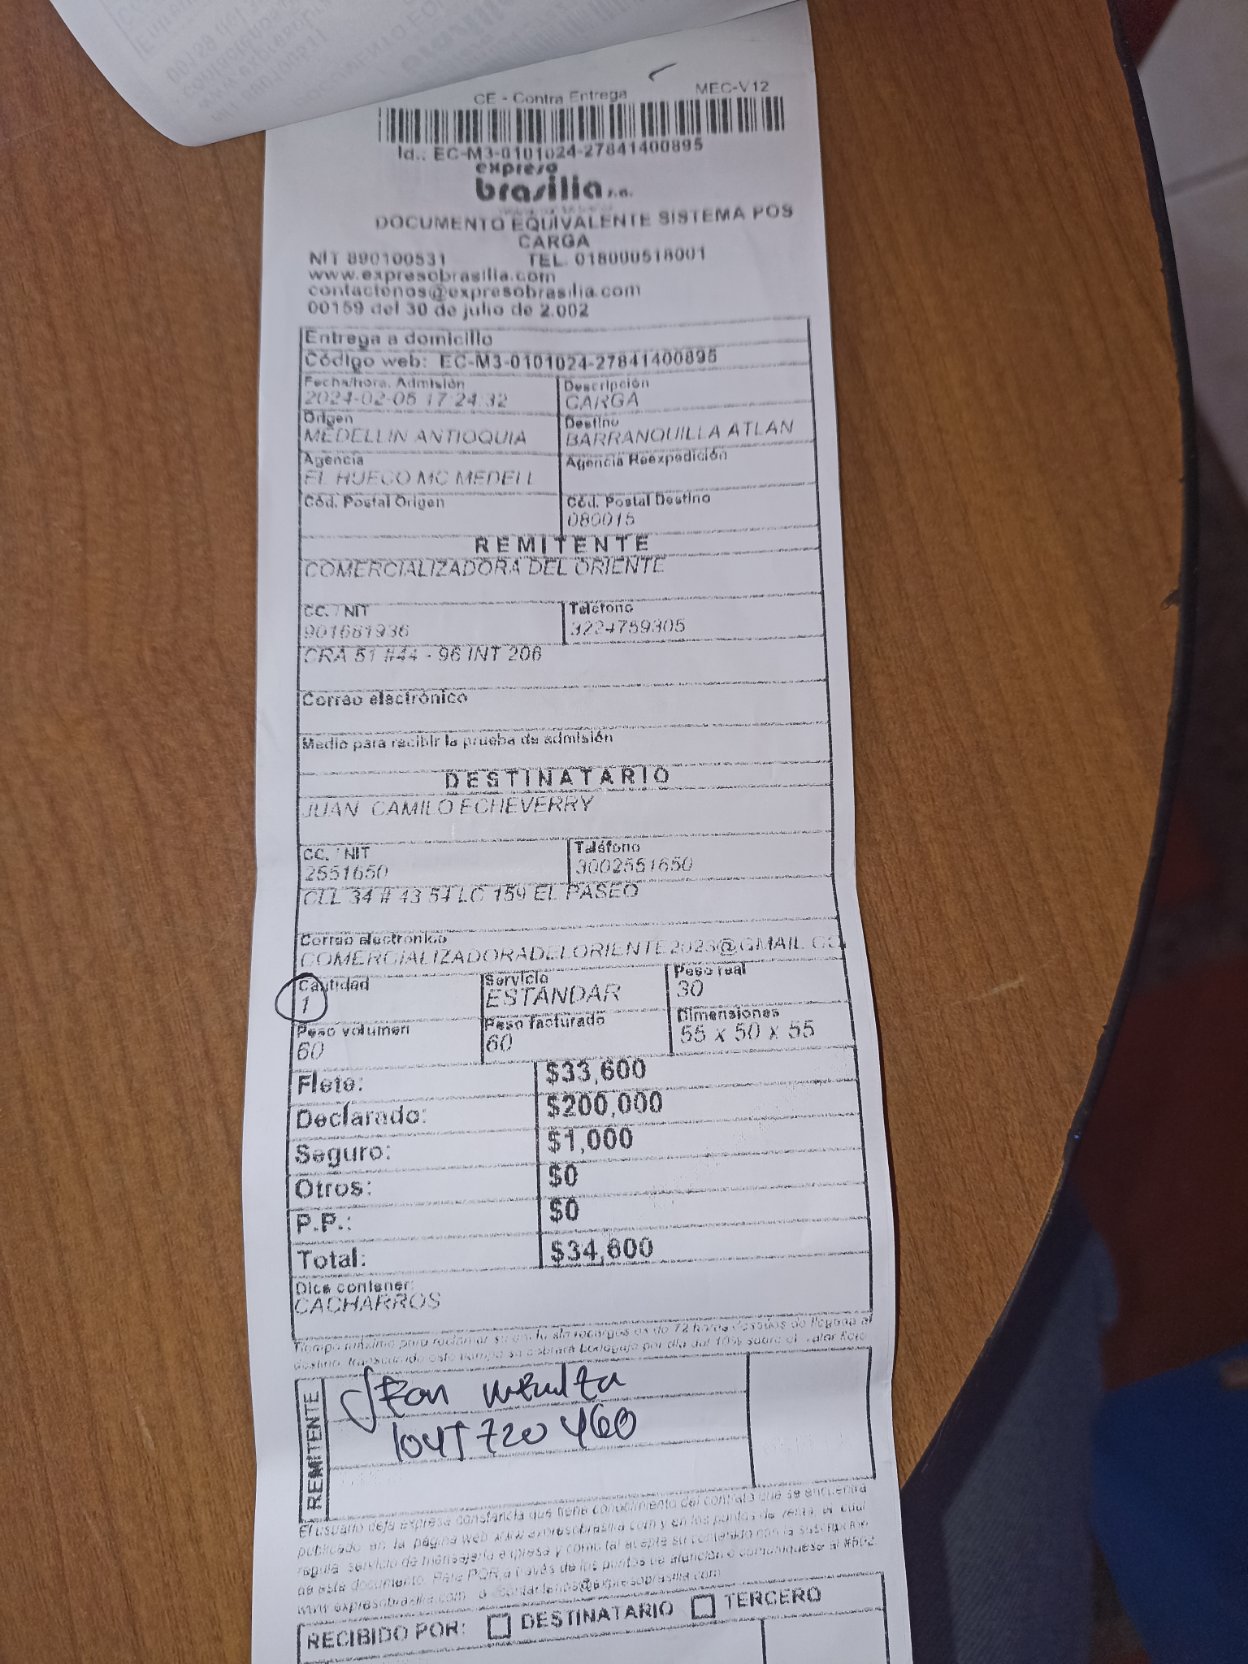 CE - Contra Entrega MEC-V12
Id.: EC-M3-0101024-27841400895
expreso
brasilia s.a.
DOCUMENTO EQUIVALENTE SISTEMA POS
CARGA
NIT 890100531 TEL. 018000518001
www.expresobrasilia.com
contactenos@expresobrasilia.com
00159 del 30 de julio de 2.002
Entrega a domicilio
Código web: EC-M3-0101024-27841400895
Fecha/hora. Admisión Descripción
2024-02-05 17:24:32 CARGA
Origen Destino
MEDELLIN ANTIOQUIA BARRANQUILLA ATLAN
Agencia Agencia Reexpedición
EL HUECO MC MEDELL
Cód. Postal Origen Cód. Postal Destino
080015
REMITENTE
COMERCIALIZADORA DEL ORIENTE
CC. / NIT Teléfono
901681936 3224759305
CRA 51 #44 - 96 INT 206
Correo electrónico
Medio para recibir la prueba de admisión
DESTINATARIO
JUAN CAMILO ECHEVERRY
CC. / NIT Teléfono
2551650 3002551650
CLL 34 # 43 54 LC 159 EL PASEO
Correo electrónico
COMERCIALIZADORADELORIENTE2023@GMAIL.CO
Cantidad Servicio Peso real
1 ESTANDAR 30
Peso volumen Peso facturado Dimensiones
60 60 55 x 50 x 55
Flete: $33,600
Declarado: $200,000
Seguro: $1,000
Otros: $0
P.P.: $0
Total: $34,600
Dice contener:
CACHARROS
Tiempo máximo para reclamar su envío sin recargos es de 72 horas después de llegada al
destino, transcurrido este tiempo se cobrará bodegaje por día del 10% sobre el valor flete
REMITENTE
1045720460
El usuario deja expresa constancia que tiene conocimiento del contrato que se encuentra
publicado en la página web www.expresobrasilia.com y en los puntos de venta, el cual
regula servicio de mensajería expresa y como tal acepta su contenido con la suscripción
de este documento. Para PQR a través de los puntos de atención o comuníquese al #502
www.expresobrasilia.com o contactenos@expresobrasilia.com
RECIBIDO POR: DESTINATARIO TERCERO